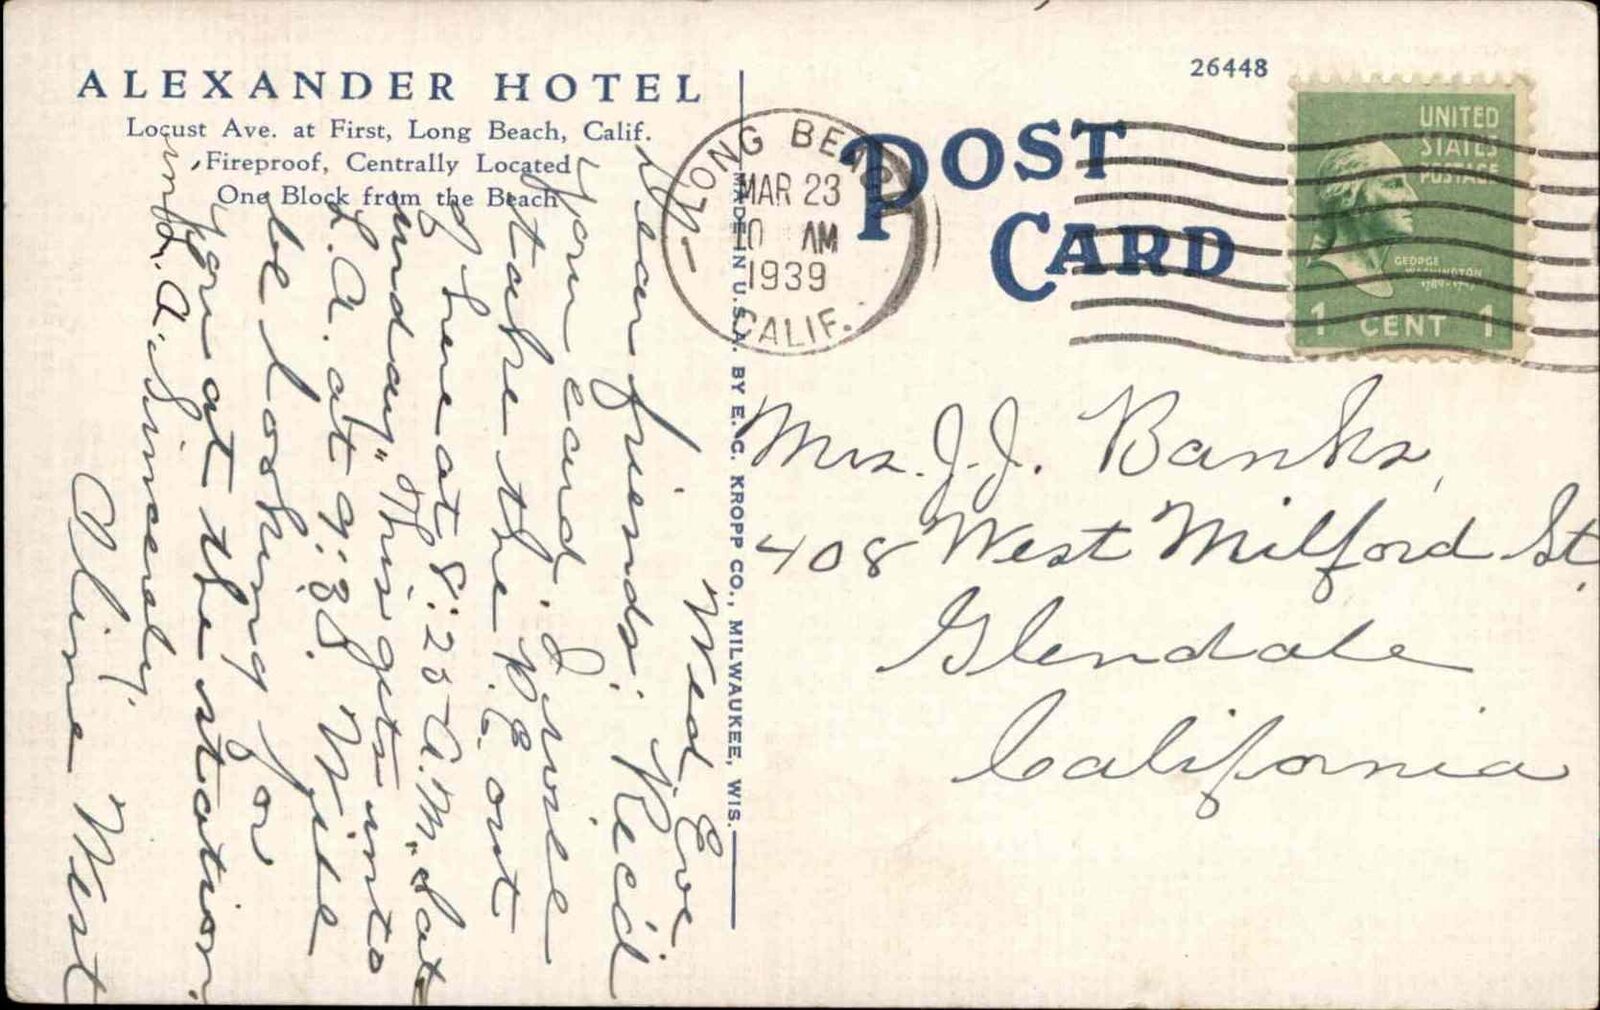 ALEXANDER HOTEL
Locust Ave. at First, Long Beach, Calif.
Fireproof, Centrally Located
One Block from the Beach
26448
POST
CARD
LONG BEACH
MAR 23
10 AM
1939
CALIF.
UNITED
STATES
POSTAGE
GEORGE
WASHINGTON
1789-1797
1 CENT 1
MADE IN U.S.A. BY E. C. KROPP CO., MILWAUKEE, WIS.
Wed. Eve
Dear friends: Rec'd
your card. I will
take the P.E. out
of here at 8:20 A.M. "Sat
unday" This gets into
L.A. at 9:35. Will
be looking for
you at the station
in L.A. Sincerely,
Aline West
Mrs. J.J. Banks,
408 West Milford St.
Glendale
California